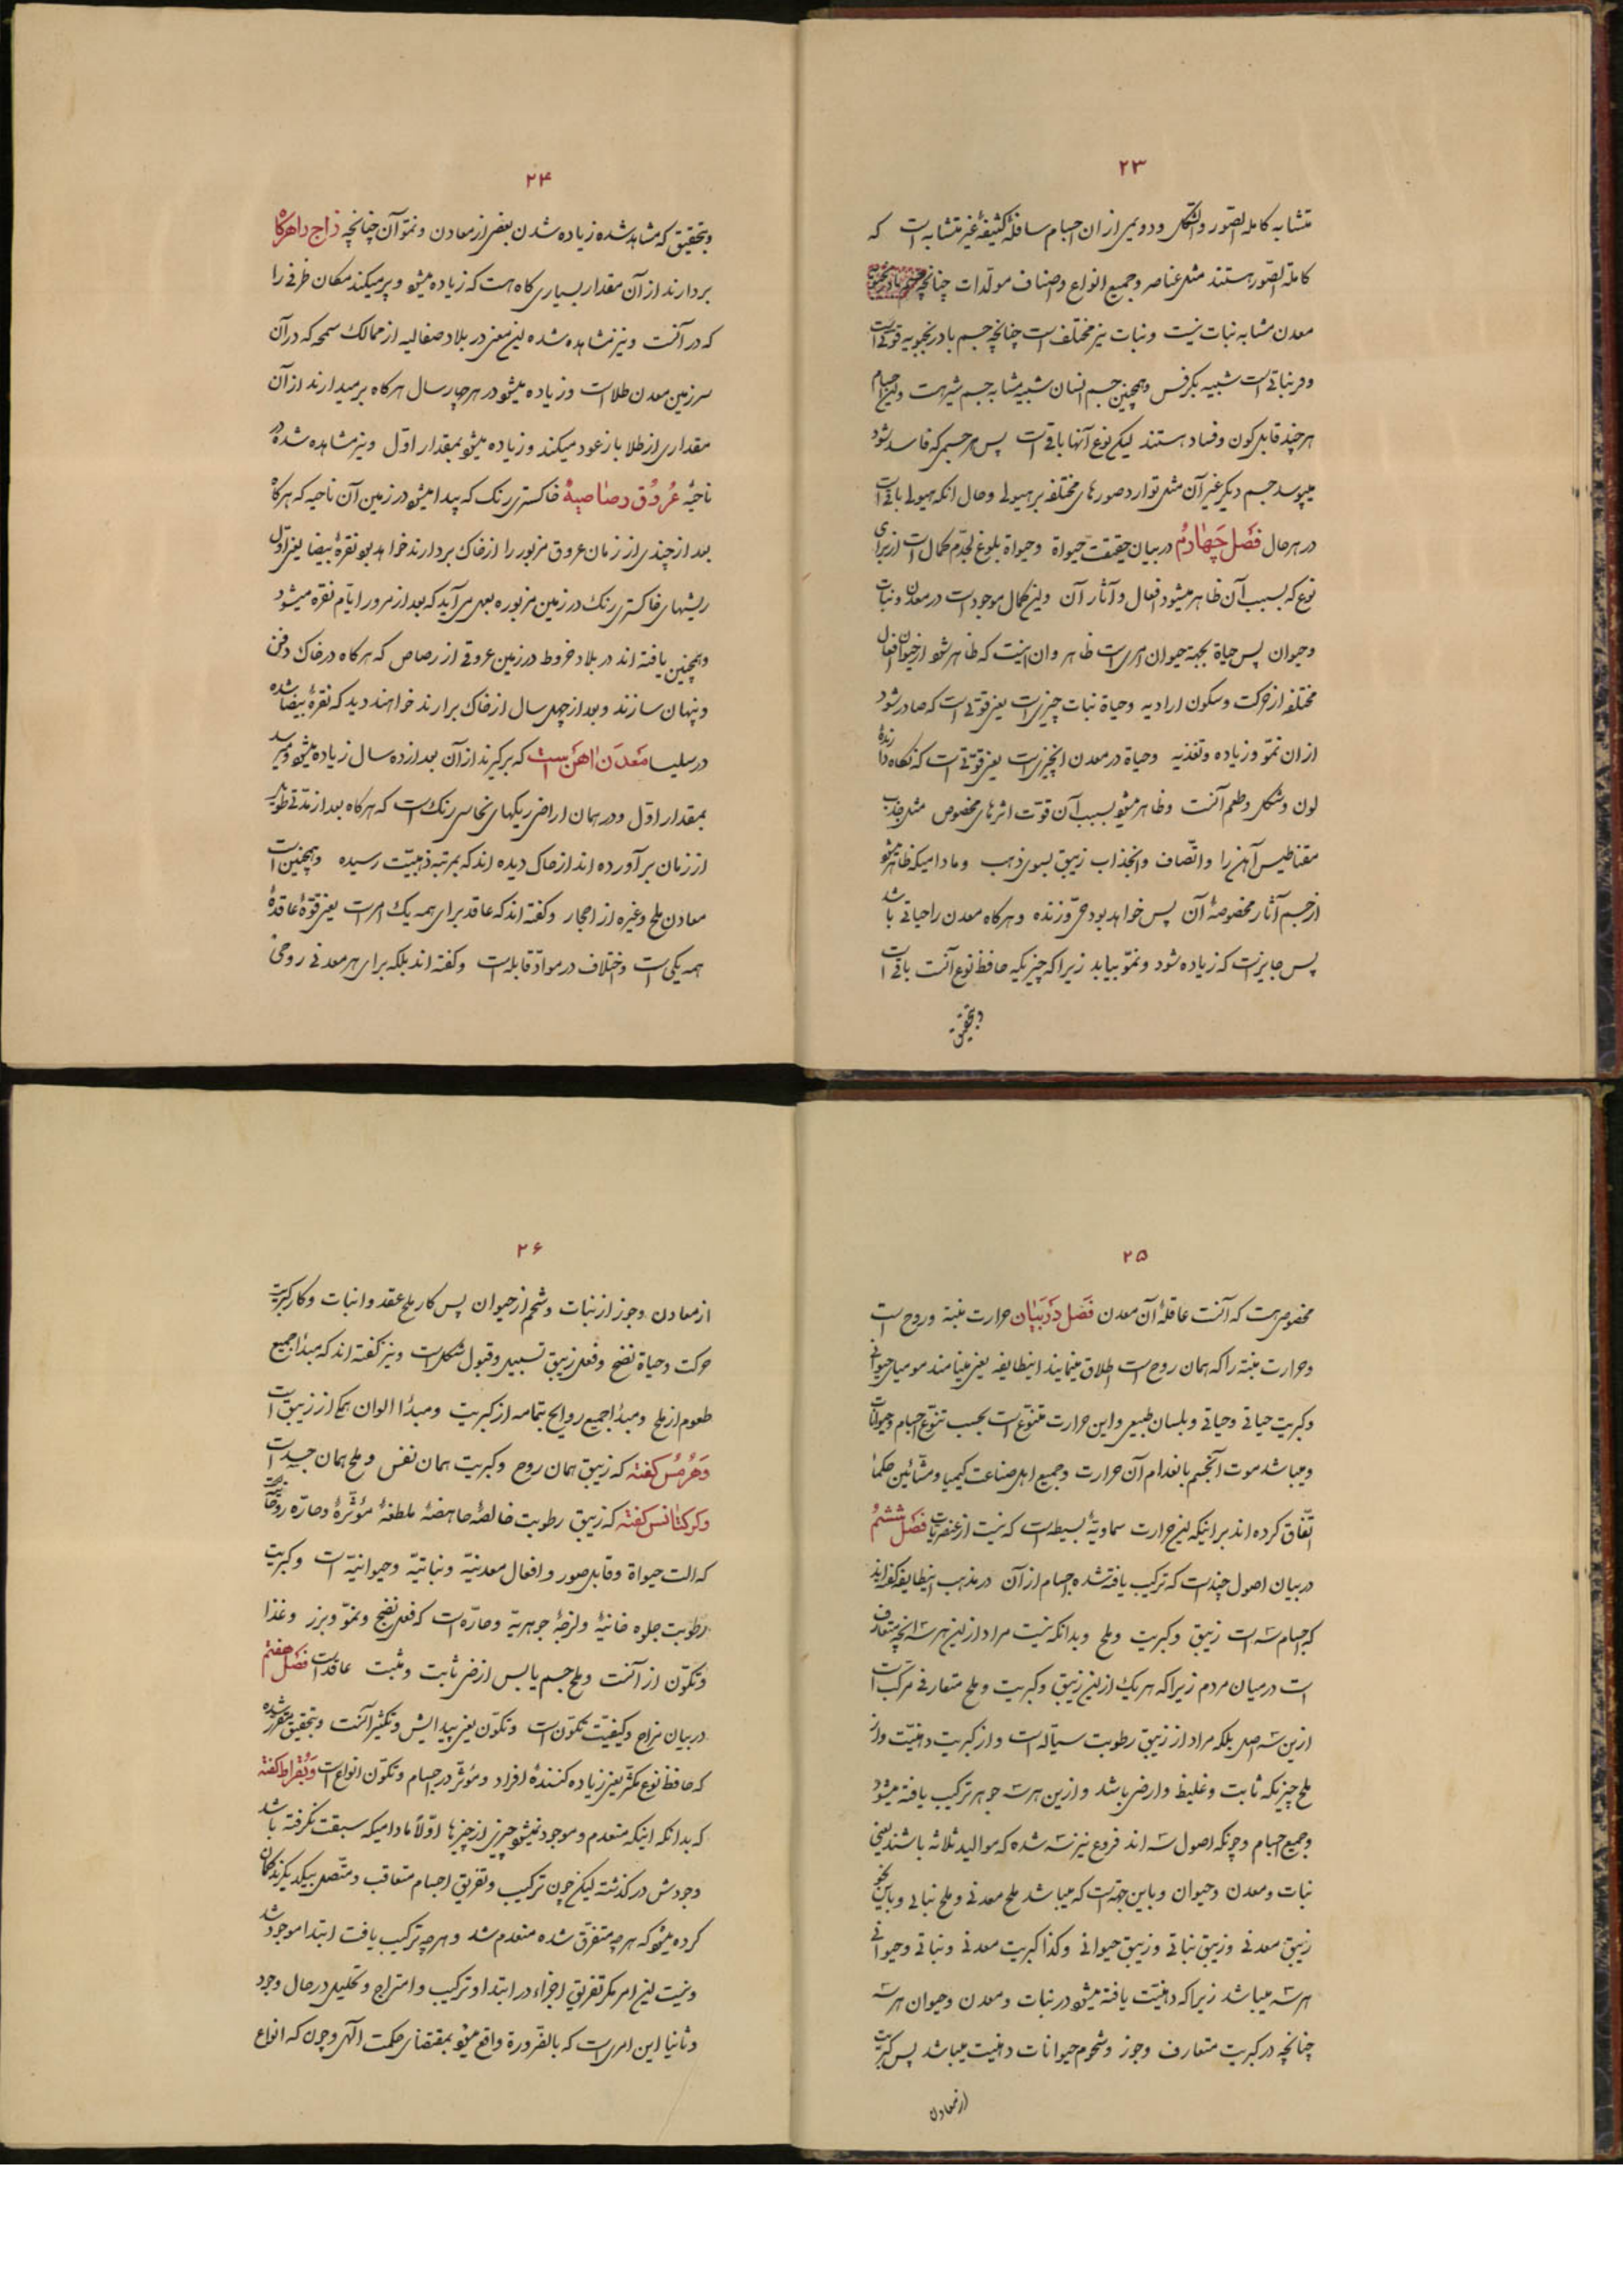 ۲۳
متشابه کاملة الصّور والشّکل ودویمی از ان اجسام سافلۀ کثیفۀ غیر متشابه است که
کاملة الصّور هستند مثل عناصر وجمیع انواع واصناف مولّدات چنانچه
معدن مشابه نبات نیست ونبات نیز مختلف است چنانچه جسم بادرنجبویه قوتی است
ودر نباتی است شبیه بکرفس وهمچنین جسم انسان شبیه مشابه جسم شیر است واین اجسام
هر چند قابل کون وفساد هستند لیکن نوع آنها باقی است پس هر جسمی که فاسد شود
میپوسد جسم دیگر غیر آن مثل توارد صورهای مختلفه بر هیولی وحال انکه هیولی باقی است
در هر حال فصل چهارم در بیان حقیقت حیواة وحیواة بلوغ بحدّ کمال است از برای
نوع که بسبب آن ظاهر میشود افعال وآثار آن واین کمال موجود است در معدن ونبات
وحیوان پس حیاة بجهة حیوان امری است ظاهر وان اینست که ظاهر شود از حیوان افعال
مختلفه از حرکت وسکون ارادیه وحیاة نبات چیزی است یعنی قوتی است که صادر شود
از ان نموّ وزیاده وتغذیه وحیاة در معدن انچیزی است یعنی قوّتی است که نگاه دارندۀ
لون وشکل وطعم آنست وظاهر میشود بسبب آن قوّت اثرهای مخصوص مثل جذب
مقناطیس آهن را واتّصاف وانجذاب زیبق بسوی ذهب ومادامیکه ظاهر میشود
از جسم آثار مخصوصۀ آن پس خواهد بود حیّ وزنده وهرکاه معدن را حیاتی باشد
پس جایز است که زیاده شود ونموّ بیابد زیرا که چیزیکه حافظ نوع آنست باقی است
وبتحقیق
۲۴
وبتحقیق که مشاهد شده زیاده شدن بعضی از معادن ونموّ آن چنانچه زاج را هرکاه
بردارند از آن مقدار بسیاری کاه هست که زیاده میشود وپر میکند مکان ظرفی را
که در آنست ونیز مشاهده شده این معنی در بلاد صقالیه از ممالک که در آن
سرزمین معدن طلا است وزیاده میشود در هر چهار سال هرکاه برمیدارند از آن
مقداری از طلا باز عود میکند وزیاده میشود بمقدار اوّل ونیز مشاهده شده در
ناحیۀ عروق رصاصیۀ خاکستری رنک که پیدا میشود در زمین آن ناحیه که هرکاه
بعد از چندی از زمان عروق مزبور را از خاک بردارند خواهد بود نقرۀ بیضا یعنی اوّل
ریشهای خاکستری رنک در زمین مزبوره بعمل می‌آید که بعد از مرور ایّام نقره میشود
وهمچنین یافته اند در بلاد خروط در زمین عروقی از رصاص که هرکاه در خاک دفن
وپنهان سازند وبعد از چهل سال از خاک برارند خواهند دید که نقرۀ بیضا شده
در سلیسا معدن اهن است که برگیرند از آن بعد از ده سال زیاده میشود ومیرسد
بمقدار اوّل ودر همان اراضی ریکهای نحاسی رنک است که هرکاه بعد از مدّتی طویل
از زمان برآورده اند از خاک دیده اند که بمرتبۀ ذهبیّت رسیده وهمچنین است
معادن ملح وغیره از احجار وکفته اند که عاقد برای همه یک امر است یعنی قوّۀ عاقدۀ
همه یکی است واختلاف در موادّ قابله است وکفته اند بلکه برای هر معدنی روحی
۲۵
مخصوص هست که آنست عاقلۀ آن معدن فصل در بیان حرارت منبته وروح است
وحرارت منبته را که همان روح است اطلاق مینمایند اینطایفه یعنی مینامند مومیای حیوانی
وکبریت حیاتی وحیاتی وبلسان طبیعی واین حرارت متنوّع است بحسب تنوّع اجسام وحیوانات
ومیباشد موت آنجسم بانعدام آن حرارت وجمیع اهل صناعت کیمیا ومشّائین حکما
اتّفاق کرده اند بر اینکه این حرارت سماویۀ بسیطه است که نیست از عنصریات فصل ششم
در بیان اصول چند است که ترکیب یافته شده اجسام از آن در مذهب اینطایفه گفته اند
که اجسام سه است زیبق وکبریت وملح وبدانکه نیست مراد از این هر سه انچه متعارف
است در میان مردم زیرا که هر یک از این زیبق وکبریت وملح متعارفی مرکّب است
از این سه اصل بلکه مراد از زیبق رطوبت سیّاله است واز کبریت دهنیّت واز
ملح چیزیکه ثابت وغلیظ وارضی باشد وازین هر سه جوهر ترکیب یافته میشود
وجمیع اجسام وچونکه اصول سه اند فروع نیز سه شده که موالید ثلاثه باشند یعنی
نبات ومعدن وحیوان وباین جهة است که میباشد ملح معدنی وملح نباتی وباین نحو
زیبق معدنی وزیبق نباتی وزیبق حیوانی وکذا کبریت معدنی ونباتی وحیوانی
هر سه میباشد زیرا که دهنیّت یافته میشود در نبات ومعدن وحیوان هر سه
چنانچه در کبریت متعارف وجوز وشحوم حیوانات دهنیت میباشد پس کبریت
از معادن
۲۶
از معادن وجوز از نبات وشحم از حیوان پس کار ملح عقد وانبات وکار کبریت
حرکت وحیاة نضج وفعل زیبق تسبیل وقبول شکل است ونیز گفته اند که مبدأ جمیع
طعوم از ملح ومبدأ جمیع روایح بتمامه از کبریت ومبدأ الوان همکی از زیبق است
وهرمس کفته که زیبق همان روح وکبریت همان نفس وملح همان جسد است
وکرکتانس کفته که زیبق رطوبت خالصۀ حامضۀ ملطفۀ مؤثّرۀ وحارّه روحانی
که الت حیواة وقابل صور وافعال معدنیّه ونباتیّه وحیوانیّه است وکبریت
رطوبت حلوه ولزجۀ جوهریّه وحارّه است که فعل نضج ونموّ وبزر وغذا
وتکوّن از آنست وملح جسم یابس ارضی ثابت ومثبت عاقد است فصل هفتم
در بیان مزاج وکیفیّت تکوّن است وتکوّن یعنی پیدایش وتکثیر آنست وبتحقیق مقرّر شده
که حافظ نوع مکثّر یعنی زیاده کنندۀ افراد ومؤثر در اجسام وتکوّن انواع است وبقراط کفته
که بدانکه اینکه منعدم وموجود نمیشود چیزی از چیزها اوّلاً مادامیکه سبقت نگرفته باشد
وجودش در کذشته لیکن چون ترکیب وتفریق اجسام متعاقب ومتّصل بیکدیکرند کمان
کرده میشود که هر چه متفرّق شده منعدم شد وهر چه ترکیب یافت ابتدا موجود شد
ونیست این امر مکر تفریق اجزاء در ابتدا وترکیب وامتزاج وتحلیل در حال وجود
وثانیا این امری است که بالضّرورة واقع میشود بمقتضای حکمت الهی وچون که انواع